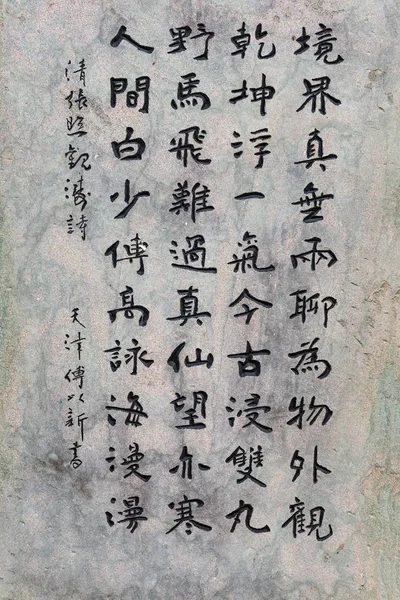 境界真無兩聊為物外觀
乾坤浮一氣今古浸雙丸
野馬飛難過真仙望亦寒
人間白少傅高詠海漫漫
清張照觀海詩
天津傅以新書